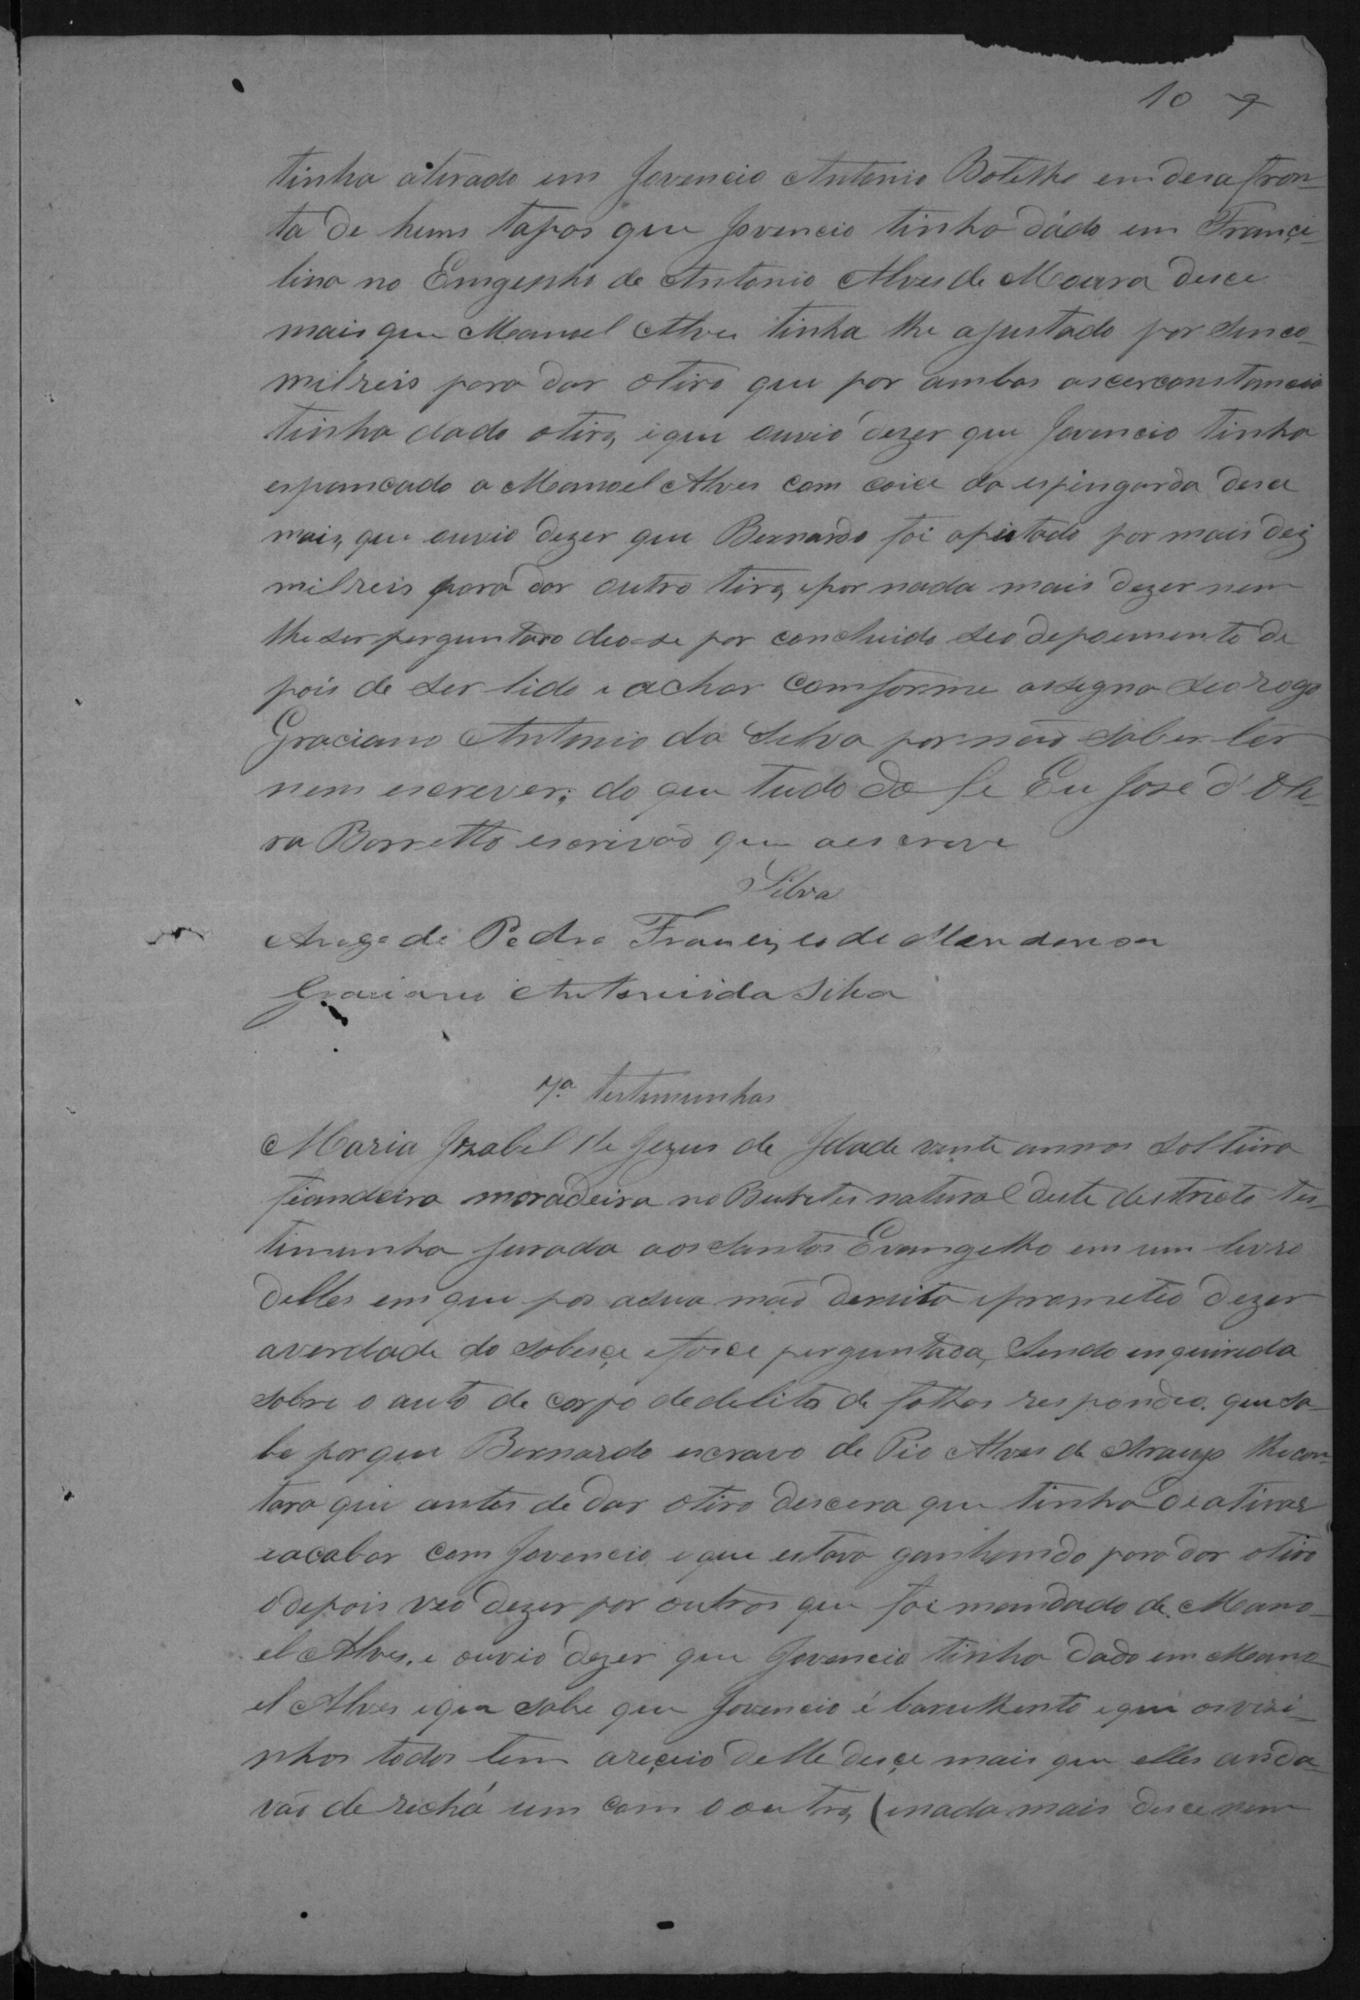 10 9
tinha atirado em Jovencio Antonio Botelho em desafron-
ta de huns tapas que Jovencio tinha dádo em France-
lina no Emgenho de Antonio Alves de Moura desce
mais que Manoel Alves tinha lhe ajustado por sinco-
milreis para dar otiro que por ambas ascerconstancia
tinha dado otiro, eque ouvio dezer que Jovencio tinha
espancado a Manoel Alves com coice da espingarda desce
mais, que ouvio dezer que Bernardo foi ajustado por mais dez
milreis pará dar outro tiro, epor nada mais dezer nem
lhe ser perguntado deo-se por concluido seo depoemento de
pois de ser lido e achar comforme assegna seo rogo
Graciano Antonio da Silva por não saber ler
nem escrever; do que tudo do fe Eu José d'Olive-
ra Barretto escrivão que aescreve
Silva
Arogo de Pedro Francisco de Mendonsa
Graciano Antonio da Silva
7ª testemunhas
Maria Izabel de Jezus de Idade vinte annos solteira
fiandeira moradeira no natural deste destricto tes-
timunha jurada aos Santos Evangelho em um livro
delles em que pos asua mão dereita eprometeo dezer
averdade do sobesçe efosce perguntada, Sendo enquirida
sobre o auto de corpo dedelito de folhas respondeo. que sa-
be porque Bernardo escravo de Pio Alves de Araujo lhe con-
tara que antes de dar otiro descera que tinha deatirar
eacabar com Jovencio, eque estava ganhando para dar otiro
edepois veo dezer por outros que foi mandado de Mano-
el Alves, e ouvio dezer que Jovencio tinha dado em Mano-
el Alves eque sabe que Jovencio é barulhento eque osvezi-
nhos todos tem areçeio delle desçe mais que elles anda-
vão de rechá um com o outro, (enada mais desce nem